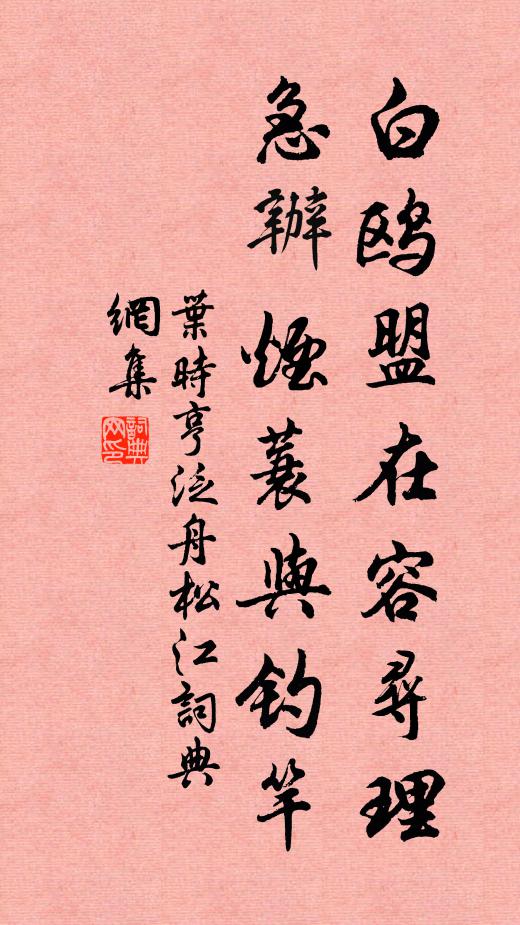 白鸥盟在容尋理
急辦煙蓑與钓竿
葉時亨泛舟松江詞典
網集
詞典網印